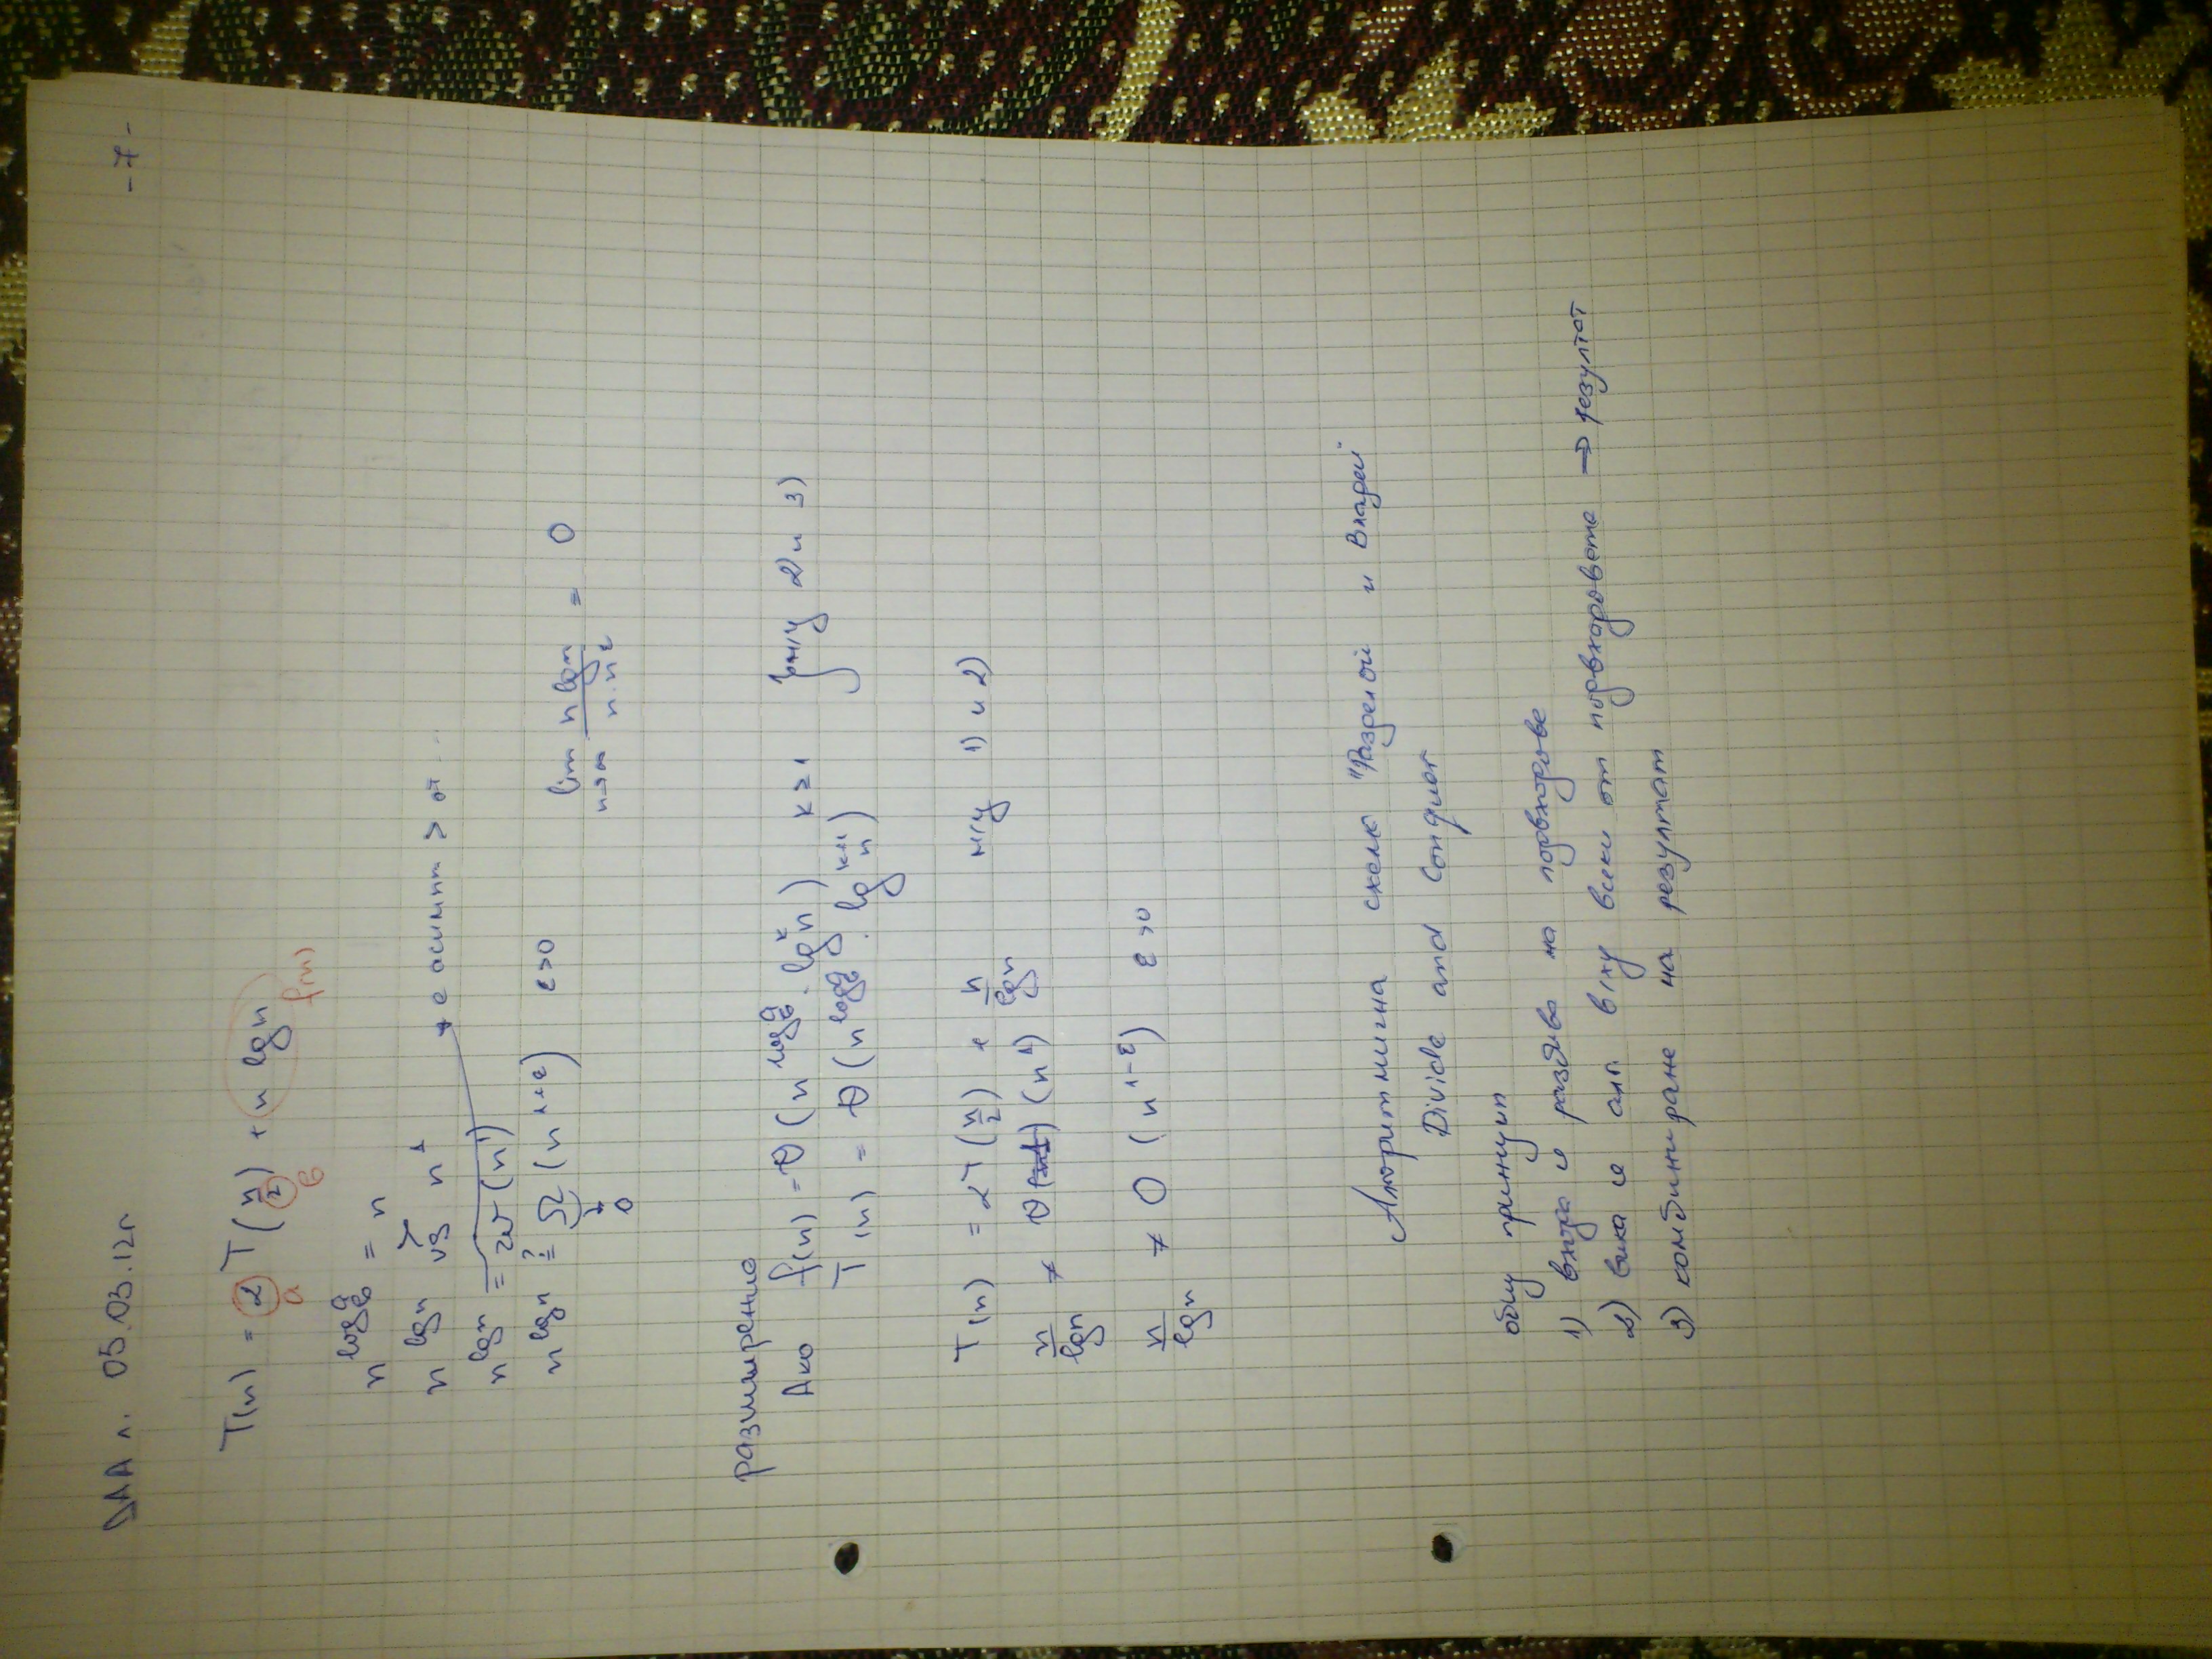 ДАА л. 05.03.12г. -7-
T(n) = 2 T(n/2) + n lgn
a b f(n)
n^(log_b a) = n
n lgn vs n^1
n lgn = ω(n^1) → е асимпт. > от ...
n lgn ?= Ω(n^(1+ε)) ε>0 lim n→∞ (n lgn)/(n.n^ε) = 0
0
разширение
Ако f(n) = Θ(n^(log_b a) . lg^k n) k ≥ 1 } м/у 2) и 3)
T(n) = Θ(n^(log_b a) . lg^(k+1) n)
T(n) = 2T(n/2) + n/lgn м/у 1) и 2)
n/lgn ≠ Θ (n^1)
n/lgn ≠ O (n^(1-ε)) ε>0
Алгоритмична схема "Разделяй и Владей"
Divide and Conquer
общ принцип
1) входа се разбива на подвходове
2) вика се алг. в/ху всеки от подвходовете → резултат
3) комбиниране на резултат